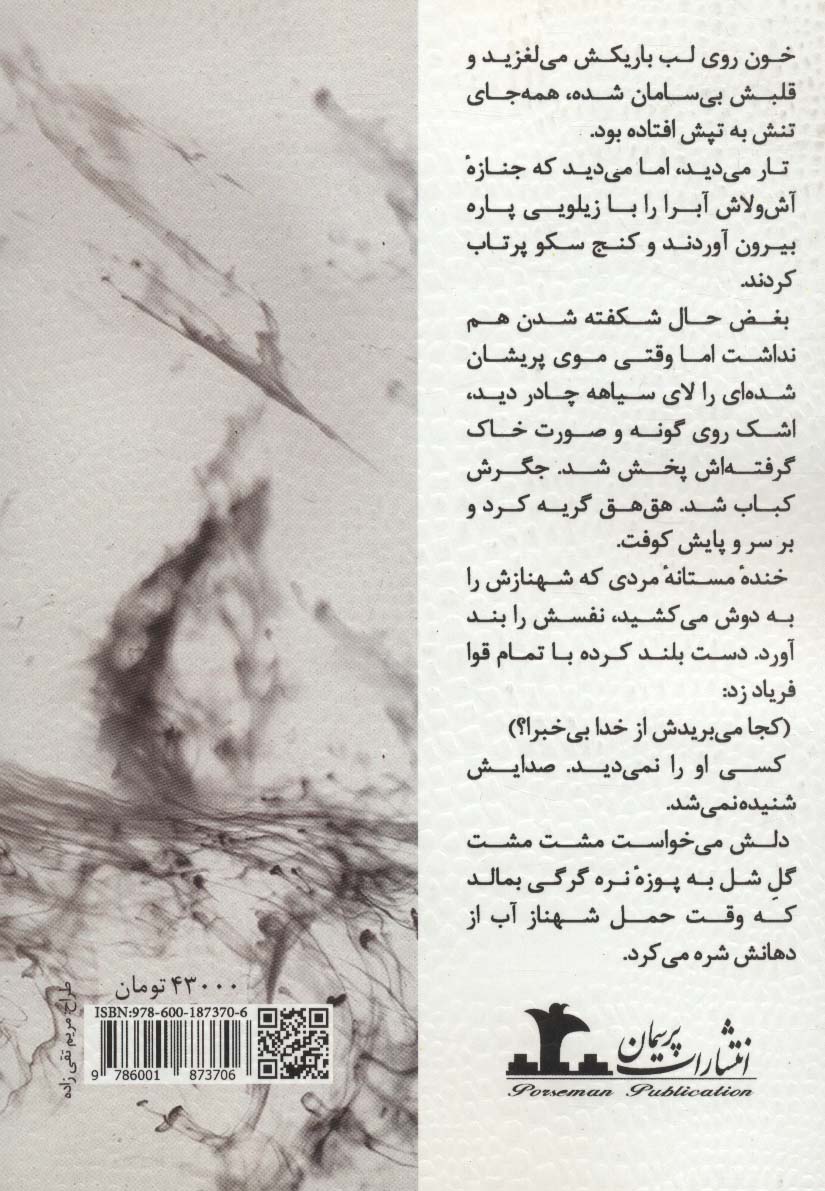 خون روی لب باریکش می‌لغزید و
قلبش بی‌سامان شده، همه‌جای
تنش به تپش افتاده بود.
تار می‌دید، اما می‌دید که جنازهٔ
آش‌ولاش آبرا را با زیلویی پاره
بیرون آوردند و کنج سکو پرتاب
کردند.
بغض حال شکفته شدن هم
نداشت اما وقتی موی پریشان
شده‌ای را لای سیاهه چادر دید،
اشک روی گونه و صورت خاک
گرفته‌اش پخش شد. جگرش
کباب شد. هق‌هق گریه کرد و
بر سر و پایش کوفت.
خندهٔ مستانهٔ مردی که شهنازش را
به دوش می‌کشید، نفسش را بند
آورد. دست بلند کرده با تمام قوا
فریاد زد:
(کجا می‌بریدش از خدا بی‌خبرا؟)
کسی او را نمی‌دید. صدایش
شنیده‌نمی‌شد.
دلش می‌خواست مشت مشت
گلِ شل به پوزهٔ نره گرگی بمالد
که وقت حمل شهناز آب از
دهانش شره می‌کرد.
انتشارات پرسمان
Porseman Publication
۴۳۰۰۰ تومان
ISBN:978-600-187370-6
9 786001 873706
طراح: مریم تقی زاده